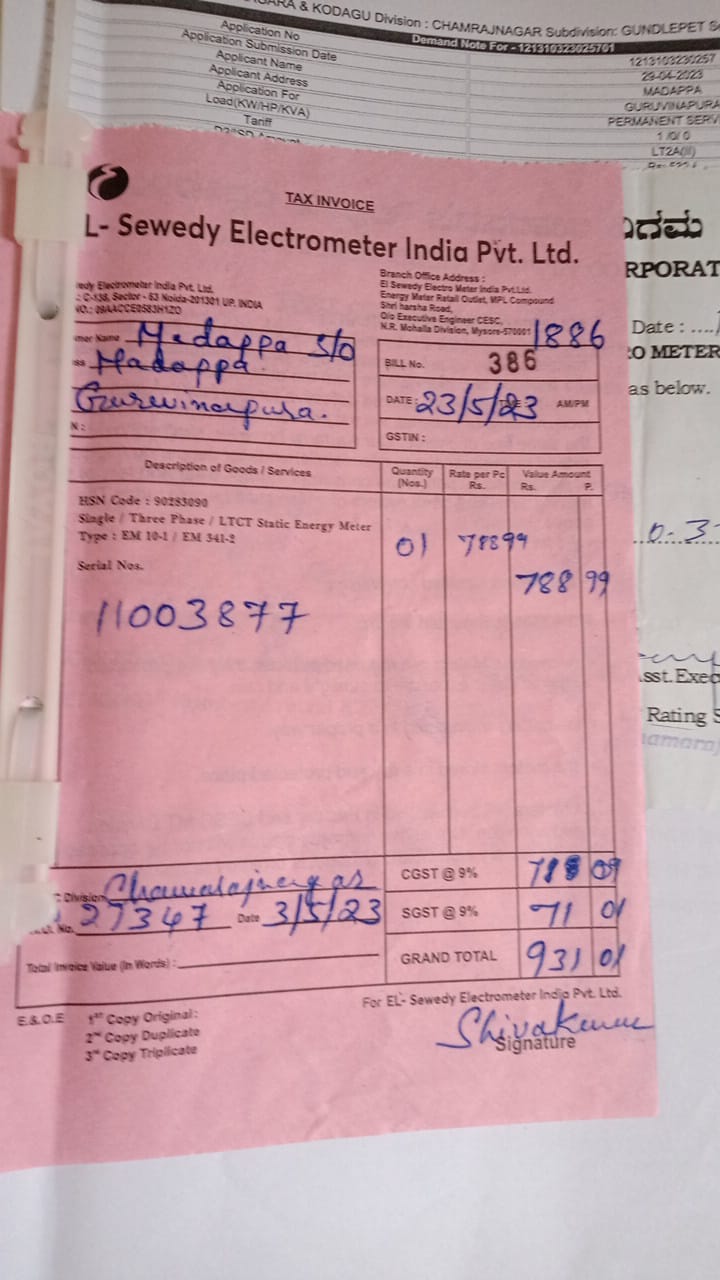 & KODAGU Division : CHAMRAJNAGAR Subdivision: GUNDLEPET
Demand Note For - 121310323025701
Application No 1213103230257
Application Submission Date 29-04-2023
Applicant Name MADAPPA
Applicant Address GURUVINAPURA
Application For PERMANENT SERV
Load(KW/HP/KVA) 1 /0/ 0
Tariff LT2A(II)
TAX INVOICE
L- Sewedy Electrometer India Pvt. Ltd.
edy Electrometer India Pvt. Ltd.
: C-138, Sector - 63 Noida-201301 UP. INDIA
Branch Office Address :
El Sewedy Electro Meter India Pvt.Ltd.
Energy Meter Retail Outlet, MPL Compound
Shri harsha Road,
O/o Executive Engineer CESC,
N.R. Mohalla Division, Mysore-570001
1886
mer Name Madappa S/o
ss Madappa.
Guruvinapura.
N :
BILL No. 386
DATE : 23/5/23 AM/PM
GSTIN :
Description of Goods / Services Quantity (Nos.) Rate per Pc Rs. Value Amount Rs. P.
HSN Code : 90283090
Single / Three Phase / LTCT Static Energy Meter
Type : EM 10-1 / EM 341-2 01 78899
Serial Nos. 788 99
11003877
CGST @ 9%
Division Chamarajnagar
No. 27347 Date 3/5/23
SGST @ 9% 71 01
Total Invoice Value (In Words) :
GRAND TOTAL 931 01
For EL- Sewedy Electrometer India Pvt. Ltd.
E.& O.E 1st Copy Original :
2nd Copy Duplicate
3rd Copy Triplicate
Shivakumar
Signature
RPORAT
Date : ....
O METER
as below.
0-3
sst. Exec
Rating S